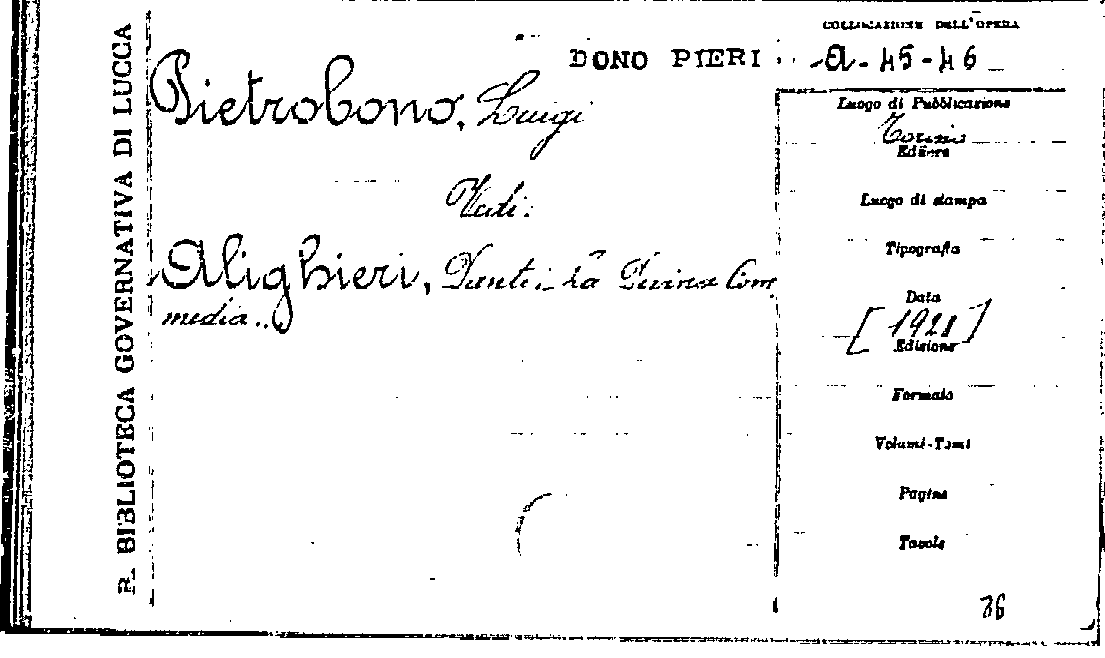 R. BIBLIOTECA GOVERNATIVA DI LUCCA
COLLOCAZIONE DELL'OPERA
DONO PIERI
A-45-46
Pietrobono, Luigi
Vedi:
Alighieri, Dante: La Divina Com
media..
Luogo di Pubblicazione
Torino
Editore
Luogo di stampa
Tipografia
Data
[1921]
Edizione
Formato
Volumi-Tomi
Pagine
Tavole